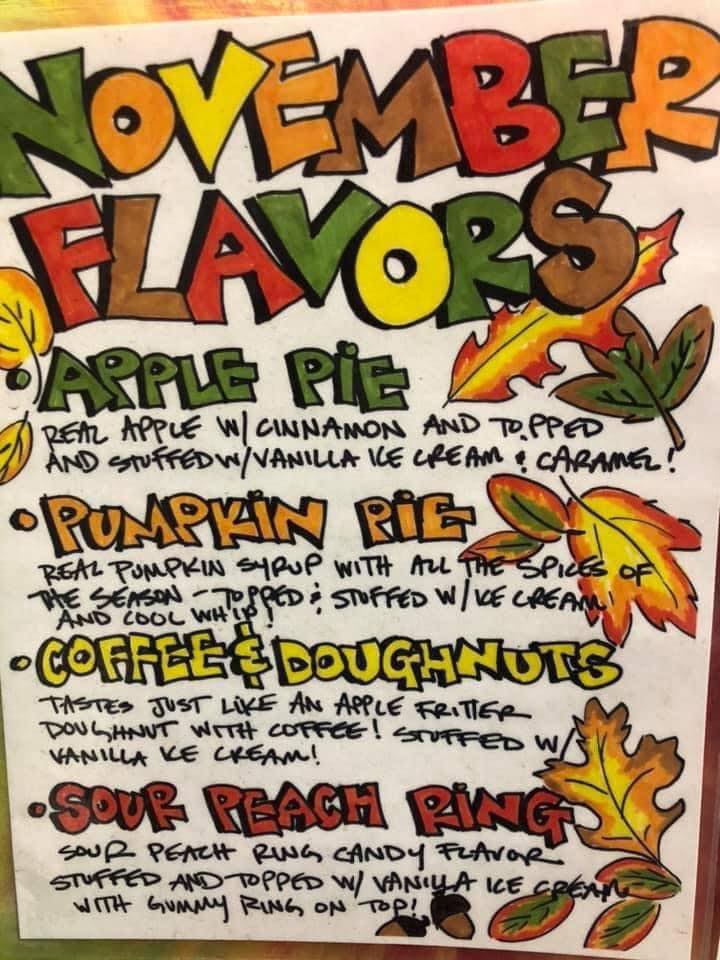 NOVEMBER
FLAVORS
• APPLE PiE
REAL APPLE W/ CINNAMON AND TOPPED
AND STUFFED W/VANILLA ICE CREAM & CARAMEL!
• PUMPKiN PiE
REAL PUMPKIN SYRUP WITH ALL THE SPICES OF
THE SEASON - TOPPED & STUFFED W/ICE CREAM
AND COOL WHIP!
• COFFEE & DOUGHNUTS
TASTES JUST LIKE AN APPLE FRITTER
DOUGHNUT WITH COFFEE! STUFFED W/
VANILLA ICE CREAM!
• SOUR PEACH RiNG
SOUR PEACH RING CANDY FLAVOR
STUFFED AND TOPPED W/ VANILLA ICE CREAM
WITH GUMMY RING ON TOP!